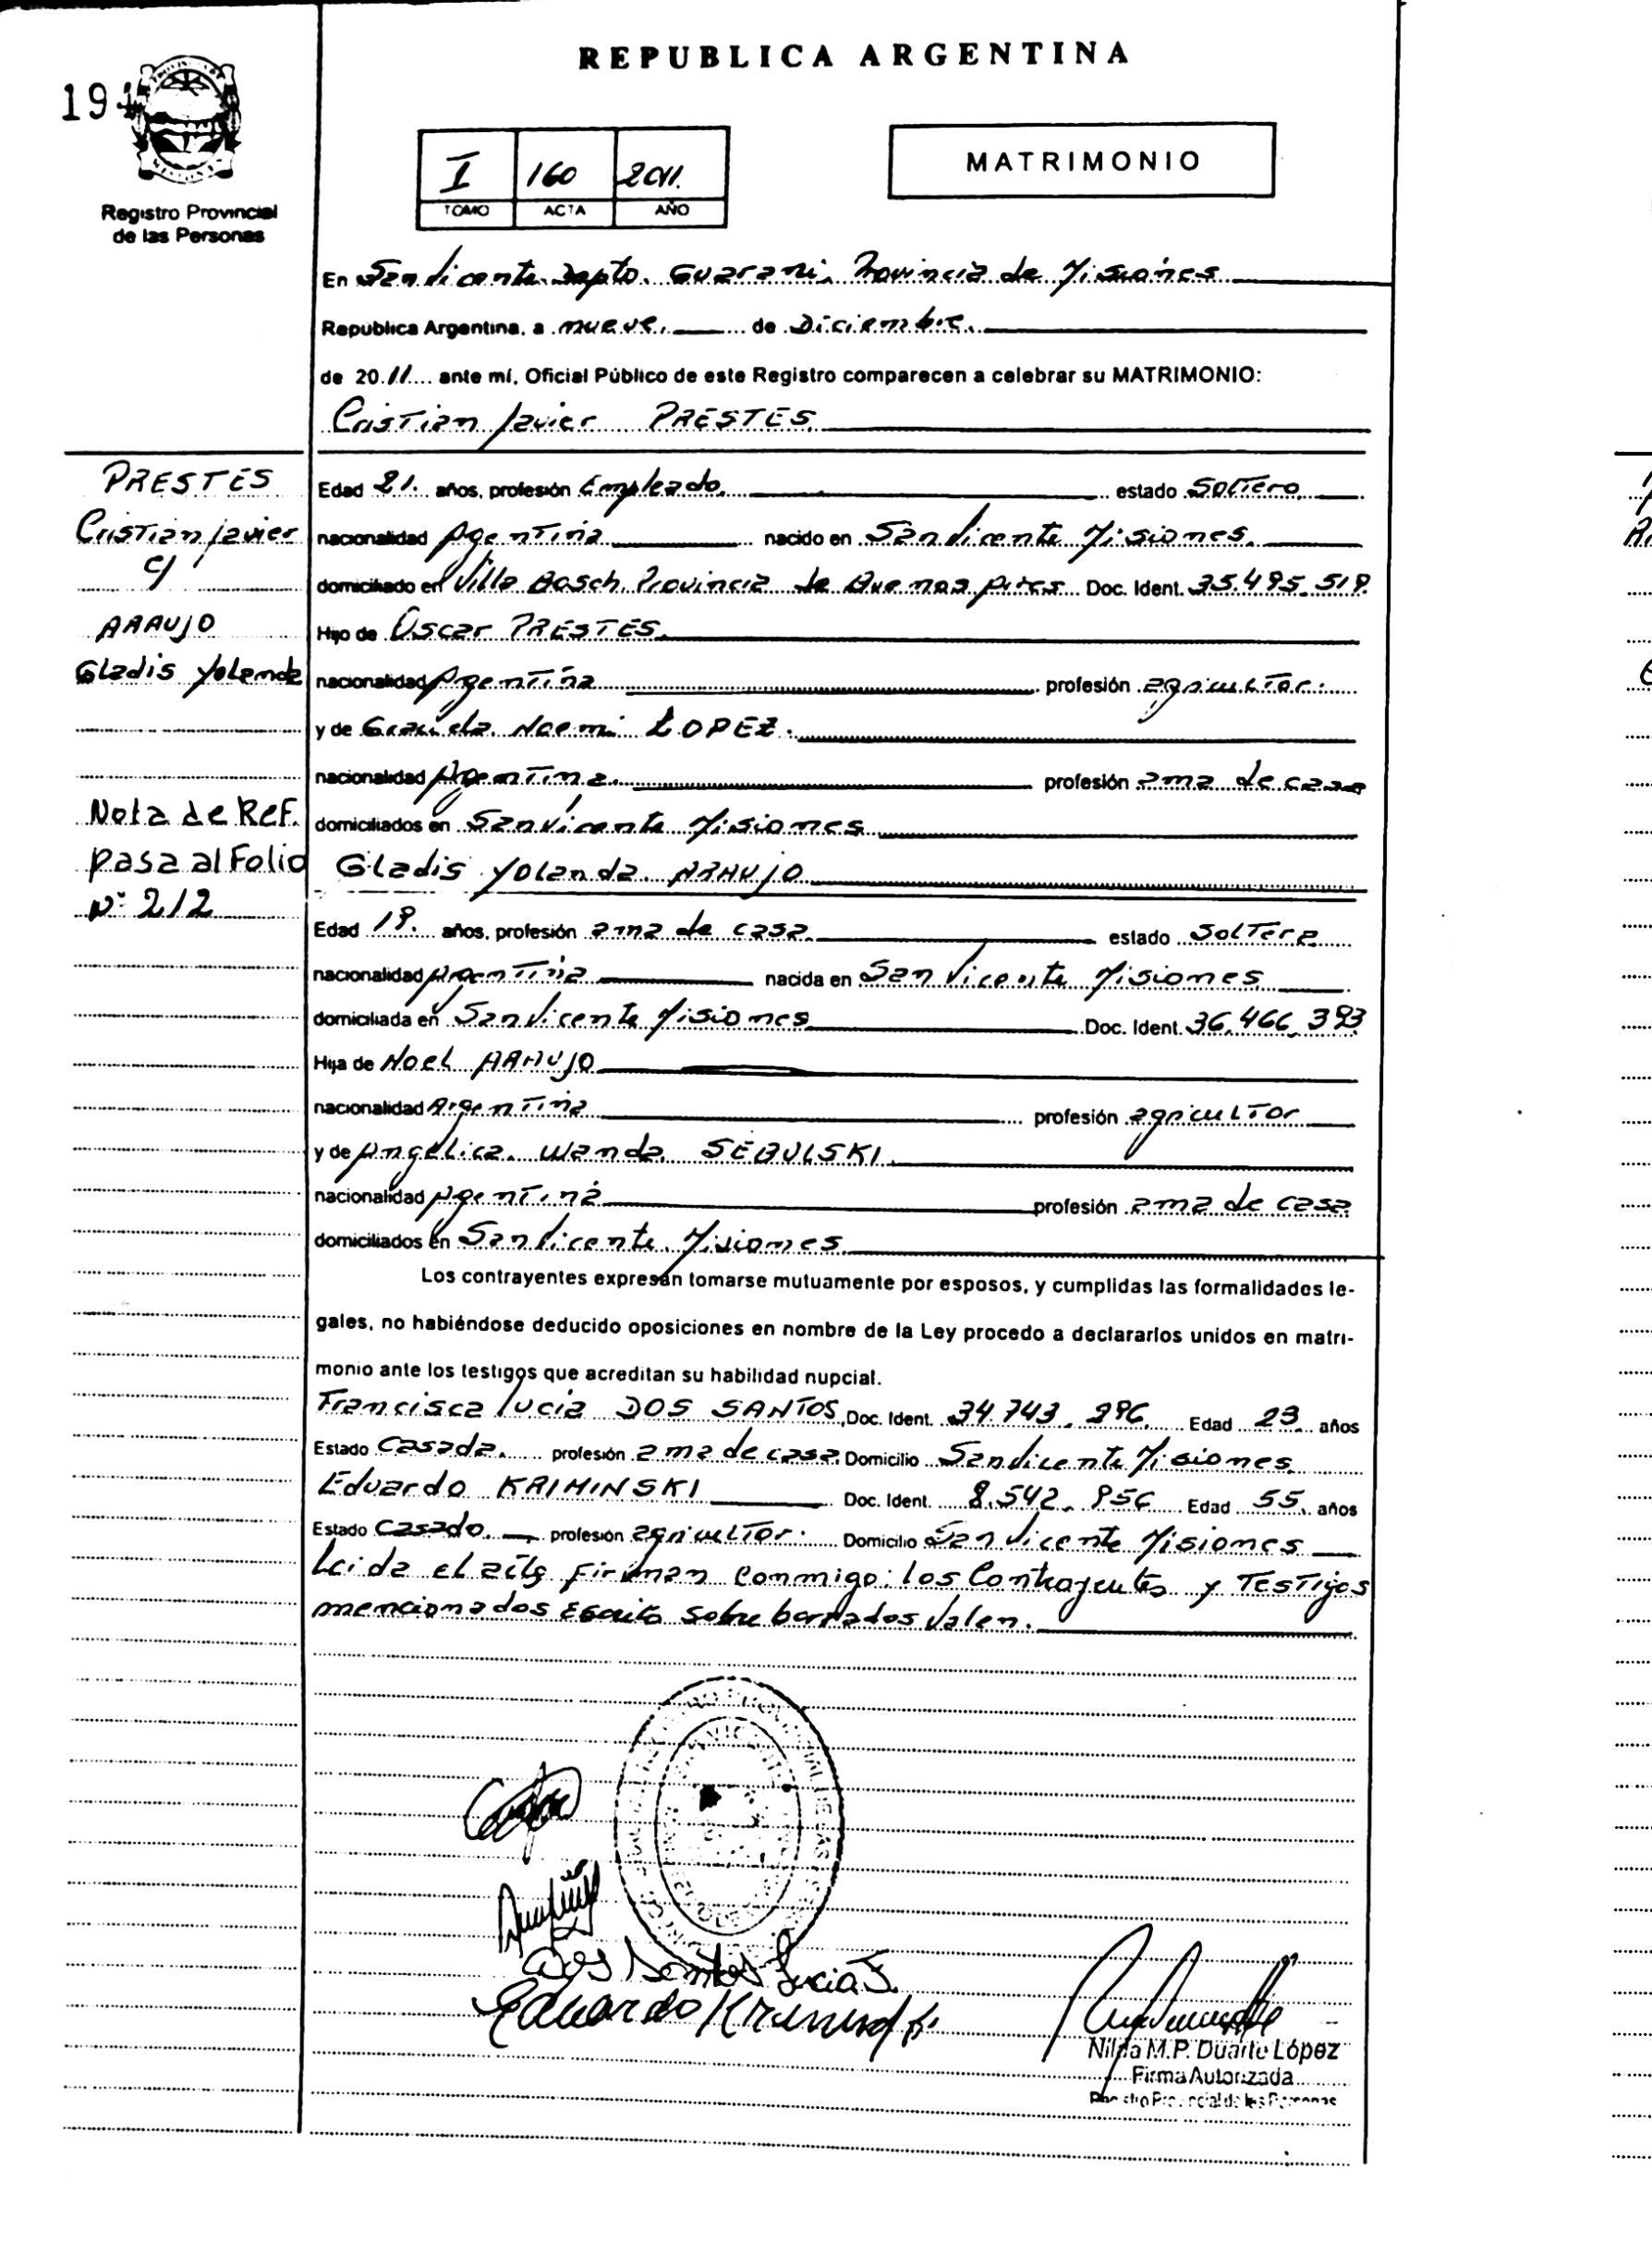 REPUBLICA ARGENTINA
Registro Provincial
de las Personas
I 160 2011.
TOMO ACTA AÑO
MATRIMONIO
En San Vicente Dapto. Guarani, Provincia de Misiones
Republica Argentina, a nueve, de Diciembre.
de 2011 ante mí, Oficial Público de este Registro comparecen a celebrar su MATRIMONIO:
Cristian Javier PRESTES
PRESTES
Cristian Javier
c/
ARAUJO
Gladis Yolanda
Nota de Ref.
pasa al Folio
Nº 212
Edad 21. años, profesión Empleado, estado Soltero
nacionalidad Argentina nacido en San Vicente Misiones.
domiciliado en Villa Bosch, Provincia de Buenos Aires Doc. Ident. 35.495.519.
Hijo de Oscar PRESTES.
nacionalidad Argentina profesión agricultor.
y de Graciela Noemi LOPEZ.
nacionalidad Argentina. profesión ama de casa
domiciliados en San Vicente Misiones
Gladis Yolanda ARAUJO
Edad 19. años, profesión ama de casa estado Soltera
nacionalidad Argentina nacida en San Vicente Misiones
domiciliada en San Vicente Misiones Doc. Ident. 36.466.393
Hija de Noel ARAUJO
nacionalidad Argentina profesión agricultor
y de Angélica Wanda SEBULSKI.
nacionalidad Argentina profesión ama de casa
domiciliados en San Vicente Misiones
Los contrayentes expresan tomarse mutuamente por esposos, y cumplidas las formalidades le-
gales, no habiéndose deducido oposiciones en nombre de la Ley procedo a declararlos unidos en matri-
monio ante los testigos que acreditan su habilidad nupcial.
Francisca Lucia DOS SANTOS, Doc. Ident. 34.743.296. Edad 23. años
Estado Casada. profesión ama de casa Domicilio San Vicente Misiones.
Eduardo KRIMINSKI Doc. Ident. 8.542.956 Edad 55. años
Estado Casado. profesión agricultor. Domicilio San Vicente Misiones
Leida el acta Firman conmigo: los Contrayentes y Testigos
mencionados Escrito sobre borrados Valen.
Dos Santos Lucia F.
Eduardo
Nilda M.P. Duarte López
Firma Autorizada
Registro Provincial de las Personas